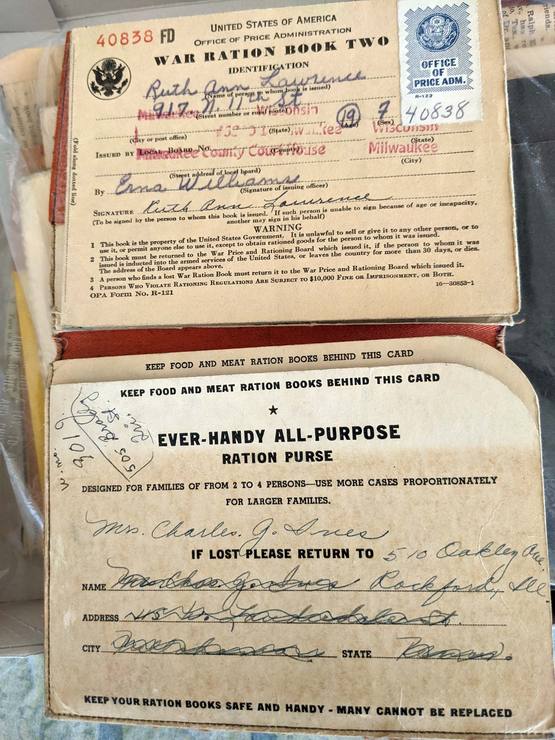 40838 FD
UNITED STATES OF AMERICA
OFFICE OF PRICE ADMINISTRATION
WAR RATION BOOK TWO
IDENTIFICATION
OFFICE OF PRICE ADM.
R-122
40838
Ruth Ann Lawrence
(Name of person to whom book is issued)
917 N. 17th St
(Street number or rural route)
Milwaukee Wisconsin
(City or post office) (State) (Age) (Sex)
19 7
ISSUED BY LOCAL BOARD NO. Milwaukee Wisconsin
(State)
Milwaukee County Courthouse Milwaukee
(Street address of local board) (City)
By Erna Williams
(Signature of issuing officer)
SIGNATURE Ruth Ann Lawrence
(To be signed by the person to whom this book is issued. If such person is unable to sign because of age or incapacity, another may sign in his behalf)
WARNING
1 This book is the property of the United States Government. It is unlawful to sell or give it to any other person, or to
use it, or permit anyone else to use it, except to obtain rationed goods for the person to whom it was issued.
2 This book must be returned to the War Price and Rationing Board which issued it, if the person to whom it was
issued is inducted into the armed services of the United States, or leaves the country for more than 30 days, or dies.
The address of the Board appears above.
3 A person who finds a lost War Ration Book must return it to the War Price and Rationing Board which issued it.
4 PERSONS WHO VIOLATE RATIONING REGULATIONS ARE SUBJECT TO $10,000 FINE OR IMPRISONMENT, OR BOTH.
OPA Form No. R-121
16—30853-1
(Fold along dotted line)
KEEP FOOD AND MEAT RATION BOOKS BEHIND THIS CARD
KEEP FOOD AND MEAT RATION BOOKS BEHIND THIS CARD
EVER-HANDY ALL-PURPOSE
RATION PURSE
DESIGNED FOR FAMILIES OF FROM 2 TO 4 PERSONS—USE MORE CASES PROPORTIONATELY
FOR LARGER FAMILIES.
Mrs. Charles. G. Ives
IF LOST PLEASE RETURN TO 510 Oakley Ave.
NAME Rockford, Ill
ADDRESS
CITY STATE
KEEP YOUR RATION BOOKS SAFE AND HANDY - MANY CANNOT BE REPLACED